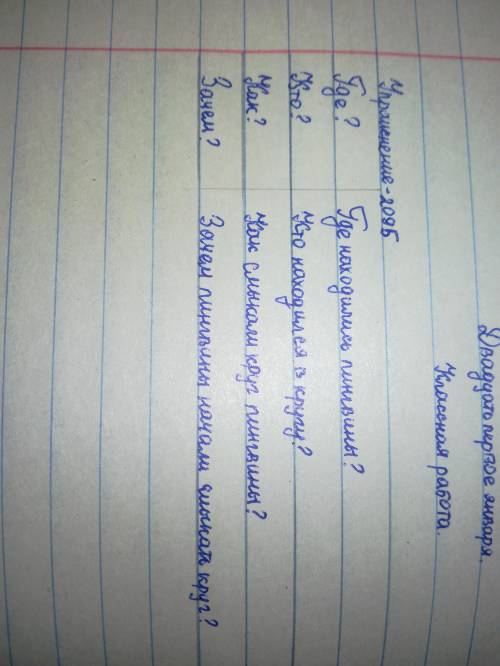 Двадцать первое января.
Классная работа.
Упражнение-209Б
Где? Где находились пингвины?
Кто? Кто находился в кругу?
Как? Как смыкали круг пингвины?
Зачем? Зачем пингвины начали смыкать круг?